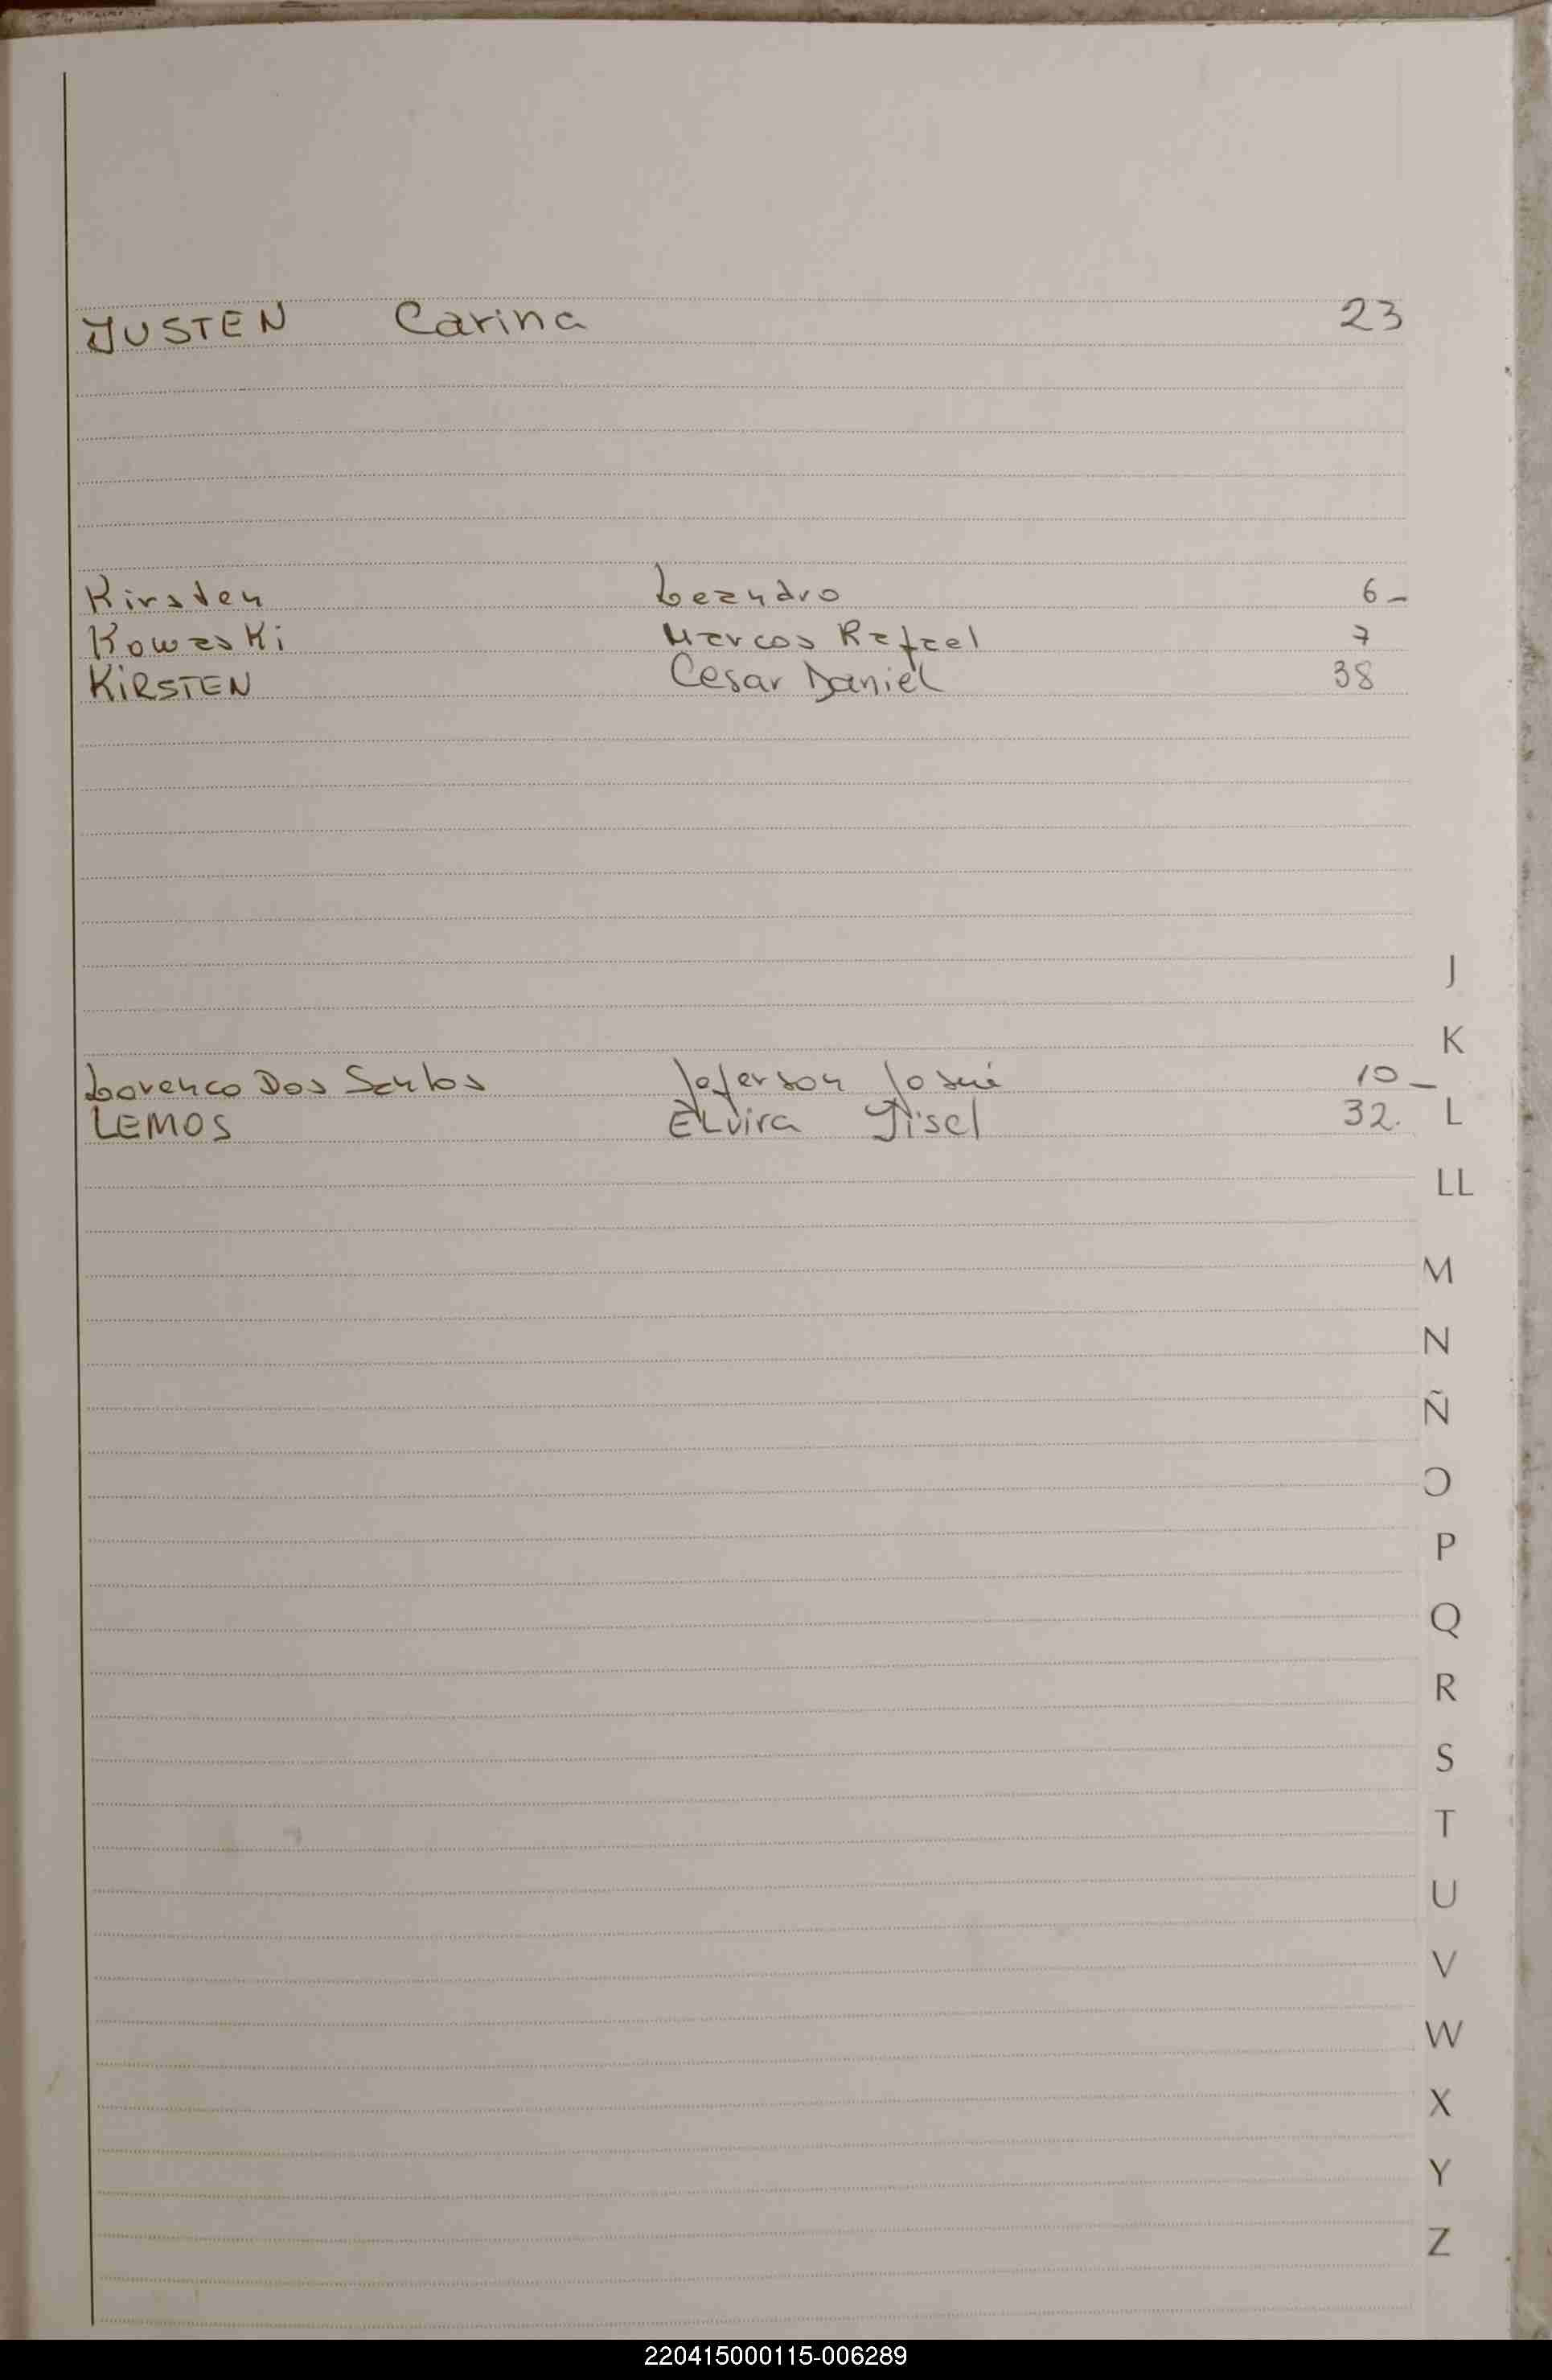 JUSTEN Carina 23
Kirsten Leandro 6-
Kowaski Marcos Rafael 7
KIRSTEN Cesar Daniel 38
J
K
Lorenco Dos Santos Jeferson Josué 10-
LEMOS Elvira Jisel 32. L
LL
M
N
Ñ
O
P
Q
R
S
T
U
V
W
X
Y
Z
220415000115-006289